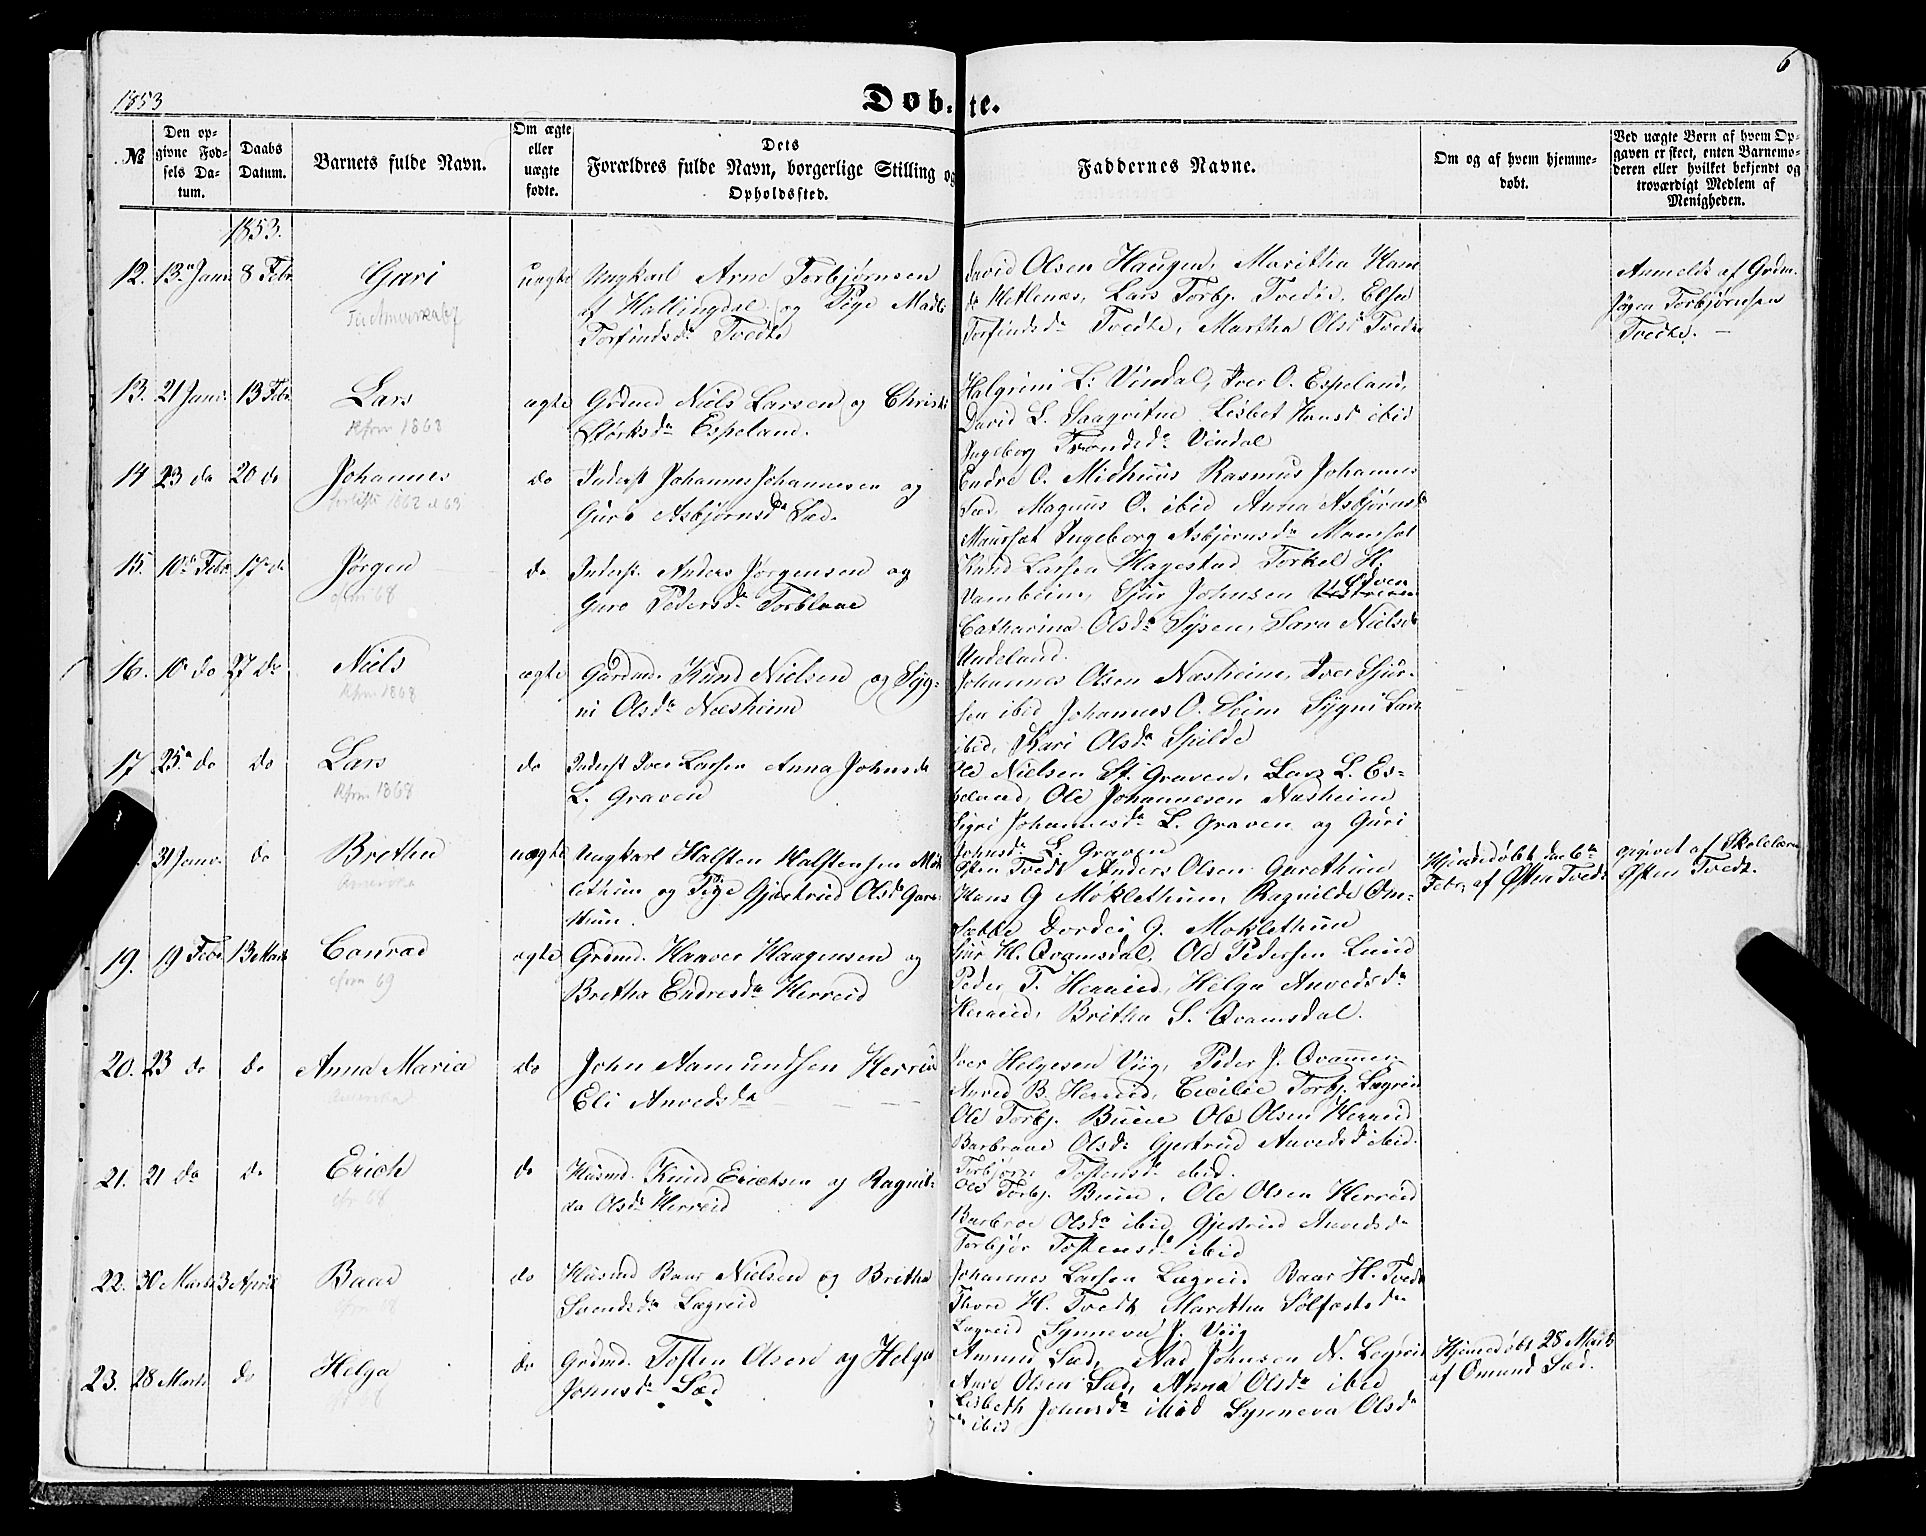 1853
6
Døb- te.
№
Den op-
givne Fød-
sels Da-
tum.
Daabs
Datum.
Barnets fulde Navn.
Om ægte
eller
uægte
fødte.
Dets
Forældres fulde Navn, borgerlige Stilling og
Opholdssted.
Faddernes Navne.
Om og af hvem hjemme-
døbt.
Ved uægte Børn af hvem Op-
gaven er skeet, enten Barnemo-
deren eller hvilket bekjendt og
troværdigt Medlem af
Menigheden.
1853.
12. 13 Janr 8 Febr Guri uægte Ungkarl Arne Torbjørnsen
af Hallingdal og Pige Madli
Torfindsdr Tvedte
David Olsen Haugen, Maritha Hans
dr Hetlenæs, Lars Torbj. Tvedte, Elsed
Torfindsdr Tvedte, Martha Olsdr Tvedte
Anmeldt af Grdm.
Jøgen Torbjørnsen
Tvedte. —
13. 21 Janr. 13 Febr Lars ægte Grdmd Niels Larsen og Christi
Størksdr Espeland.
Kfrm 1868
Halgrim L: Vindal, Iver O. Espeland,
David L. Saaqvitne Lisbet Hansdr ibid
Ingeborg Trondsdr Vindal
14 23 do 20 do Johannes do Inderst Johannes Johannesen og
Guro Asbjørnsdr Sæd.
1862 63
Endre O. Midhuus Rasmus Johannes
Sæd, Magnus O. ibid Anna Asbjørnsdr
Maursæt Ingeborg Asbjørnsdr Maursæt
15. 10de Febr 17de do Jørgen do Inderst. Anders Jørgensen og
Guro Pedersdr Torblaae
cfrm 68
Knud Larsen Hagestad Torkel H.
Vambeim, Sjur Johnsen Edven
Catharina Olsdr Sysen, Sara Nielsdr
Undeland.
16. 10 do 27 do Niels ægte Gaardmd. Knud Nielsen og Syg-
ni Olsdr Næsheim
Kfrm 1868
Johannes Olsen Næsheim, Iver Sjur-
sen ibid Johannes O. Seim Sygni Lars
ibid, Kari Olsdr Spilde
17 25 do do Lars do Inderst Iver Larsen Anna Johnsdr
L. Graven
Kfrm 1868
Ole Nielsen St. Graven, Lars L. Es-
peland, Ole Johannesen Næsheim
Sigri Johannesdr L. Graven og Guri
Johnsdr L. Graven
31 Janr. do Bretha uægte Ungkarl Halsten Halstensen Mok-
lethun og Pige Gjertrud Olsdr Gare-
thun.
Amerika
Østen Tvedt Anders Olsen Garethun
Hans G Moklethun, Ragnilde Om-
sætte Dordei G. Moklethun
Hjemmedøbt den 6te
Febr. af Østen Tvedt
opgivet af Skolelærer
Østen Tvedt.
19. 19 Febr 13 Marts Conrad ægte Grdmd. Haaver Haagensen og
Bretha Endresdr Herreid
cfrm 69
Sjur H. Qvamsdal, Ole Pedersen Lund
Peder T. Herreid, Helga Anvedsdr
Herreid, Britha S. Qvamsdal.
20. 23 do do Anna Maria do John Aamundsen Herreid
Eli Anvedsdr — — —
Amerika
Iver Helgesen Viig, Peder J. Qvammen
Anved B. Herreid, Cecilie Torbj. Lægreid
Ole Torbj. Buue Ole Olsen Herreid
Barbraae Olsdr Gjertrud Anvedsdr ibid.
Torbjøre Tostensdr ibid.
21. 21 do do Erich do Husmd. Knud Erichsen og Ragnil-
da Olsdr Herreid
cfr 68
Ole Torbj. Buue, Ole Olsen Herreid
Barbroe Olsdr ibid, Gjertrud Anvedsdr
Torbjør Tostensdr ibid
22. 30 Marts 3 April Baar do Husmd Baar Nielsen og Britha
Svendsdr Lægreid
cfrm 68
Johannes Larsen Lægreid Baar H. Tvedt
Thore H. Tvedt Maretha Solfæstsdr
Lægreid Synneva P. Viig
23. 28 Marts do Helga do Grdmd. Tosten Olsen og Helga
Johnsdr Sæd
Amund Sæd, Aad Johnsen N. Legreid
Anve Olsen Sæd, Anna Olsdr ibid
Lisbeth Johnsdr ibid Synneva Olsd
dr ibid
Hjemmedøbt 28 Marts
af Omund Sæd.